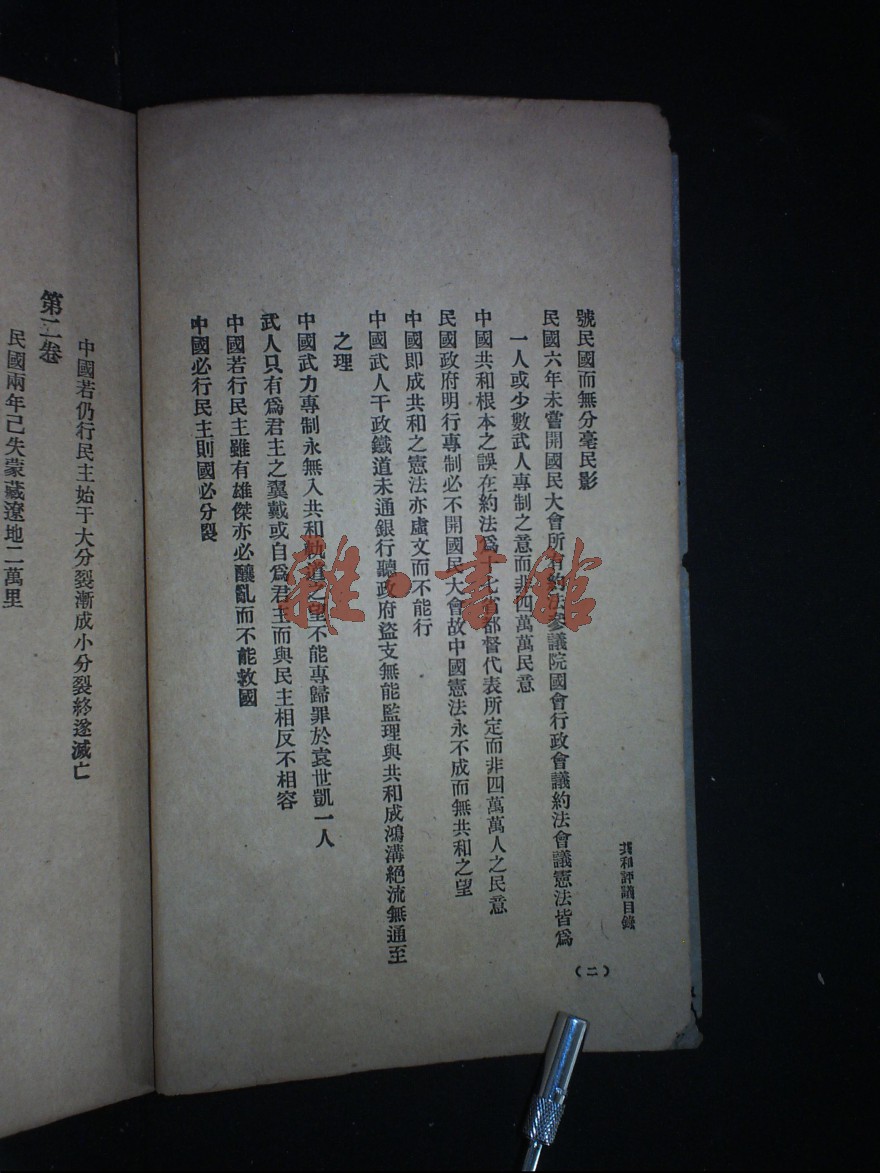 共和評議目錄
(二)
號民國而無分毫民影
民國六年未嘗開國民大會所有約法參議院國會行政會議約法會議憲法皆爲
一人或少數武人專制之意而非四萬萬民意
中國共和根本之誤在約法爲十七省都督代表所定而非四萬萬人之民意
民國政府明行專制必不開國民大會故中國憲法永不成而無共和之望
中國即成共和之憲法亦虛文而不能行
中國武人干政鐵道未通銀行聽政府盜支無能監理與共和成鴻溝絕流無通至
之理
中國武力專制永無入共和軌道之望不能專歸罪於袁世凱一人
武人只有爲君主之翼戴或自爲君主而與民主相反不相容
中國若行民主雖有雄傑亦必釀亂而不能救國
中國必行民主則國必分裂
中國若仍行民主始于大分裂漸成小分裂終遂滅亡
第二卷
民國兩年已失蒙藏遼地二萬里
雜·書館